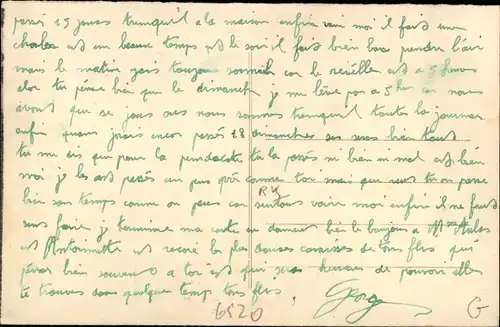 passé 15 jours tranquil a la maison enfin voir moi il fait une
chaleur est un beau temps est le soir il fait bien bon prendre l'air
mais le matin jais toujour sommeil car le réveille est a 5 heures
alor tu pense bien que le dimanche je me lève pas a 5 heur car nous
avont que se jour ses nous sommes tranquil toutes la journer
enfin quans jorais encor passés 18 dimanches ses sera bien tout
tu me dis que pour la pendecote tu la passés ni bien ni mal est bien
moi je les est passés un peu près comme toi mais que veut tu on passe
bien son temps comme on peus car surtous voir moi enfin il ne faut
sens faire je termine ma carte en donnent bien le bonjour a Mme
est Antoinette est recoie les plus douces caresses de ton fils qui
pense bien souvent a toi est qui sera heureux de pouvoir elle
te trouver dans quelque temps ton fils,
Georges
RX
6520
G